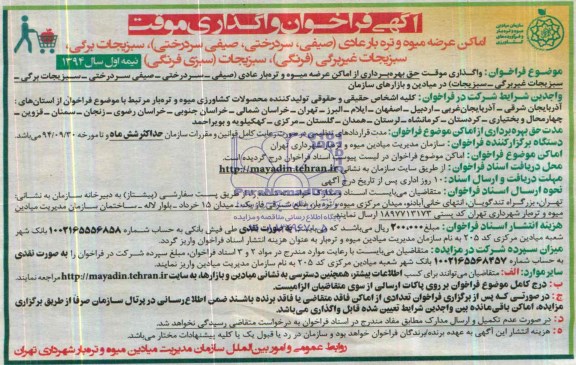 آگهی فراخوان واگذاری موقت
اماکن عرضه میوه و تره بار عادی (صیفی، سردرختی، صیفی سردرختی)، سبزیجات برگی،
سبزیجات غیربرگی (فرنگی)، سبزیجات (سبزی فرنگی) نیمه اول سال ۱۳۹۴
موضوع فراخوان: واگذاری موقت حق بهره‌برداری از اماکن عرضه میوه و تره‌بار عادی (صیفی – سردرختی – صیفی سردرختی – سبزیجات برگی –
سبزیجات غیربرگی – سبزیجات) در میادین و بازارهای سازمان
واجدین شرایط شرکت در فراخوان: کلیه اشخاص حقیقی و حقوقی تولیدکننده محصولات کشاورزی میوه و تره‌بار مرتبط با موضوع فراخوان از استان‌های:
آذربایجان شرقی – آذربایجان غربی – اردبیل – اصفهان – ایلام – البرز – تهران – خراسان شمالی – خراسان جنوبی – خراسان رضوی – زنجان – سمنان – قزوین –
چهارمحال و بختیاری – کردستان – کرمانشاه – لرستان – همدان – گلستان – مرکزی – کهگیلویه و بویراحمد
مدت حق بهره‌برداری از اماکن موضوع فراخوان: مدت قراردادهای در صورت رعایت کامل قوانین و مقررات سازمان حداکثر شش ماه و تا مورخه ۹۴/۰۹/۳۰ می‌باشد.
دستگاه برگزارکننده فراخوان: سازمان مدیریت میادین میوه و تره‌بار شهرداری تهران
اماکن موضوع فراخوان: اماکن موضوع فراخوان در لیست پیوست اسناد فراخوان درج گردیده است.
محل دریافت اسناد فراخوان: از طریق سایت سازمان به نشانی http://mayadin.tehran.ir
مهلت دریافت و ارسال اسناد: ۱۰ روز اداری پس از تاریخ درج آگهی
نحوه ارسال اسناد فراخوان: متقاضیان می‌بایست اسناد طریق پست سفارشی (پیشتاز) به دبیرخانه سازمان به نشانی:
تهران، بزرگراه تندگویان، انتهای خانی‌آبادنو، میدان مرکزی میوه و تره‌بار، ضلع شرقی فاز یک، میدان ۱۵ خرداد – بلوار لاله – ساختمان سازمان مدیریت میادین
میوه و تره‌بار شهرداری تهران کد پستی ۱۸۹۷۷۱۳۱۷۳ ارسال نمایند.
هزینه انتشار اسناد فراخوان: مبلغ ۲۰۰،۰۰۰ ریال می‌باشد که می‌بایست به صورت نقدی طی فیش بانکی به حساب شماره ۱۰۰۲۱۶۵۵۵۶۸۵۸ بانک شهر
شعبه میادین مرکزی کد ۲۰۵ به نام سازمان مدیریت میادین میوه و تره‌بار به عنوان هزینه انتشار اسناد فراخوان واریز گردد.
میزان سپرده شرکت در مزایده: متقاضیان می‌بایست با رعایت موارد مندرج در مواد ۲ و ۳ اسناد فراخوان، مبلغ سپرده شرکت در فراخوان را به صورت نقدی
به حساب شماره ۱۰۰۲۱۶۵۵۶۸۳۵۷ بانک شهر شعبه میادین مرکزی کد ۲۰۵ به نام سازمان مدیریت میادین واریز نمایند.
سایر موارد: الف: متقاضیان می‌توانند برای کسب اطلاعات بیشتر، همچنین دسترسی به نشانی میادین و بازارها، به سایت http://mayadin.tehran.ir مراجعه نمایند.
ب: درج کامل موضوع فراخوان بر روی پاکات ارسالی از سوی متقاضیان الزامیست.
ج: در صورتی که پس از برگزاری فراخوان تعدادی از اماکن فاقد متقاضی یا فاقد برنده باشند ضمن اطلاع‌رسانی در پرتال سازمان صرفاً از طریق برگزاری
مزایده، اماکن باقی‌مانده بین واجدین شرایط تعیین شده قابل واگذاری می‌باشد.
د: در صورت عدم تکمیل و ارسال مدارک مطابق مفاد مندرج در اسناد فراخوان به درخواست متقاضی رسیدگی نخواهد شد.
ه: هزینه انتشار این آگهی به عهده برنده/برندگان فراخوان خواهد بود و سازمان در رد یا قبول یک یا کلیه پیشنهادات مختار می‌باشد.
روابط عمومی و امور بین‌الملل سازمان مدیریت میادین میوه و تره‌بار شهرداری تهران